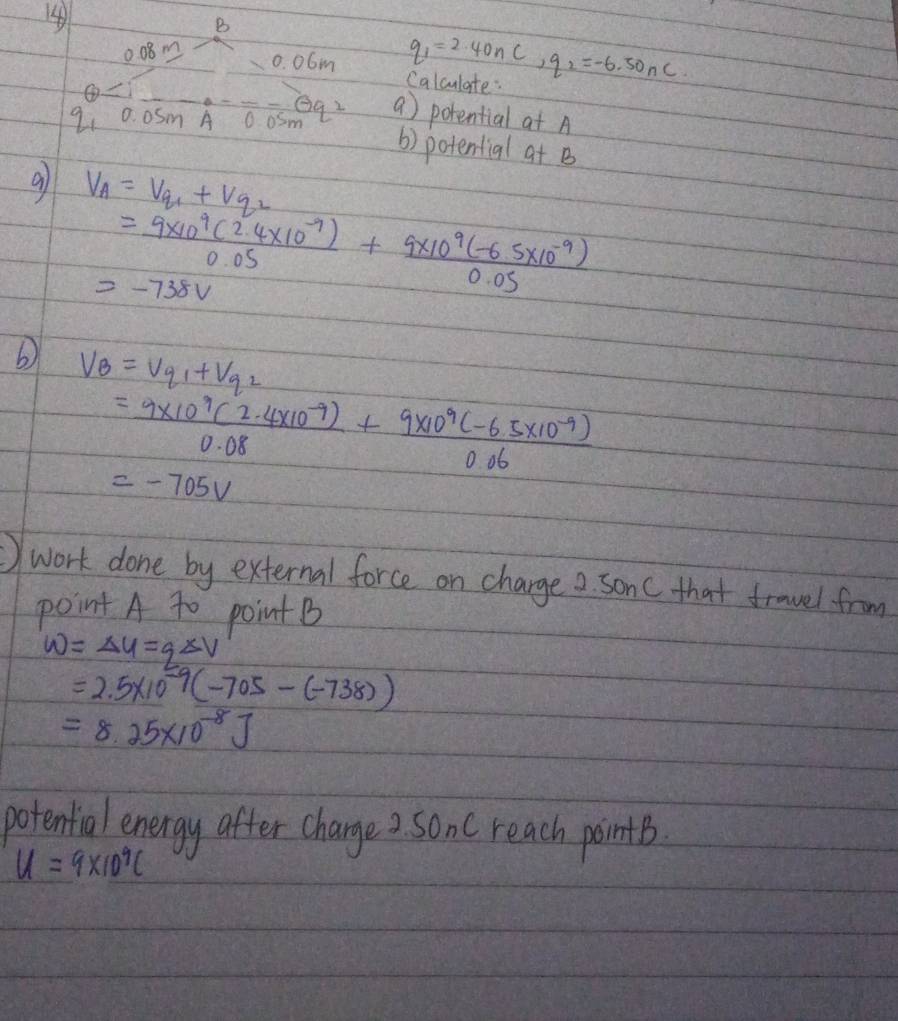 14)
B
0.08 m
0.06m
q₁ = 2.40nC, q₂ = -6.50nC.
Calculate:
⊕
q₁
0.05m
A
0.05m
⊖q₂
a) potential at A
b) potential at B
a) VA = Vq₁ + Vq₂
= 9x10⁹(2.4x10⁻⁹)/0.05 + 9x10⁹(-6.5x10⁻⁹)/0.05
= -738V
b) VB = Vq₁ + Vq₂
= 9x10⁹(2.4x10⁻⁹)/0.08 + 9x10⁹(-6.5x10⁻⁹)/0.06
= -705V
c) Work done by external force on charge 2.50nC that travel from
point A to point B
W = ΔU = qΔV
= 2.5x10⁻⁹(-705 - (-738))
= 8.25x10⁻⁸ J
potential energy after charge 2.50nC reach point B.
U = 9x10⁹(